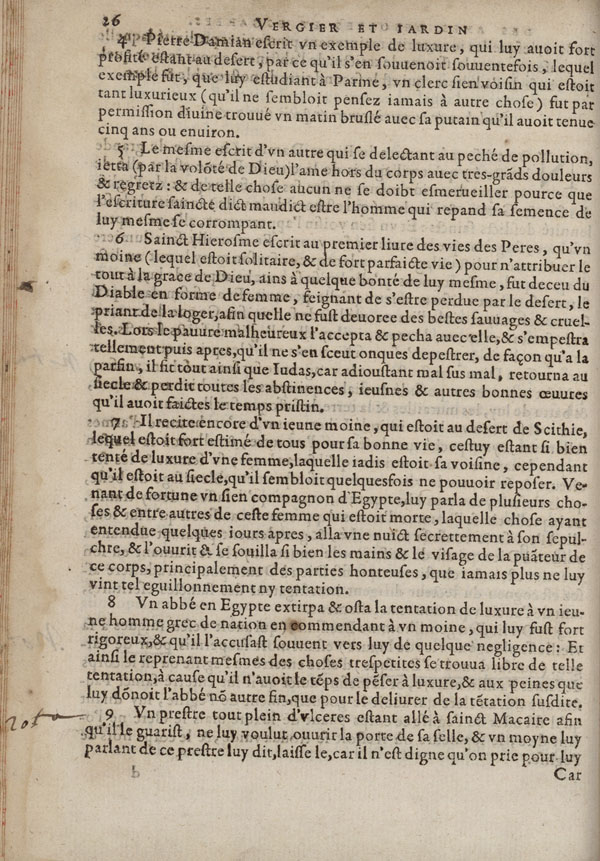 26 VERGIER ET IARDIN
4 Pierre Damian escrit vn exemple de luxure, qui luy auoit fort
profité estant au desert, par ce qu'il s'en souuenoit souuentefois, lequel
exemple fut, que luy estudiant à Parme, vn clerc sien voisin qui estoit
tant luxurieux (qu'il ne sembloit pensez iamais à autre chose) fut par
permission diuine trouué vn matin bruslé auec sa putain qu'il auoit tenue
cinq ans ou enuiron.
5 Le mesme escrit d'vn autre qui se delectant au peché de pollution,
ietta (par la volõté de Dieu) l'ame hors du corps auec tres-grãds douleurs
& regretz : & de telle chose aucun ne se doibt esmerueiller pource que
l'escriture saincte dict maudict estre l'homme qui repand sa semence de
luy mesme se corrompant.
6 Sainct Hierosme escrit au premier liure des vies des Peres, qu'vn
moine (lequel estoit solitaire, & de fort parfaicte vie) pour n'attribuer le
tout à la grace de Dieu, ains à quelque bonté de luy mesme, fut deceu du
Diable en forme de femme, feignant de s'estre perdue par le desert, le
priant de la loger, afin quelle ne fust deuoree des bestes sauuages & cruel-
les. Lors le pauure malheureux l'accepta & pecha auec elle, & s'empestra
tellement puis apres, qu'il ne s'en sceut onques depestrer, de façon qu'a la
parfin, il fit tout ainsi que Iudas, car adioustant mal sus mal, retourna au
siecle & perdit toutes les abstinences, ieusnes & autres bonnes œuures
qu'il auoit faictes le temps pristin.
7 Il recite encore d'vn ieune moine, qui estoit au desert de Scithie,
lequel estoit fort estimé de tous pour sa bonne vie, cestuy estant si bien
tenté de luxure d'vne femme, laquelle iadis estoit sa voisine, cependant
qu'il estoit au siecle, qu'il sembloit quelquesfois ne pouuoir reposer. Ve-
nant de fortune vn sien compagnon d'Egypte, luy parla de plusieurs cho-
ses & entre autres de ceste femme qui estoit morte, laquelle chose ayant
entendue quelques iours apres, alla vne nuict secrettement à son sepul-
chre, & l'ouurit & se souilla si bien les mains & le visage de la puãteur de
ce corps, principalement des parties honteuses, que iamais plus ne luy
vint tel eguillonnement ny tentation.
8 Vn abbé en Egypte extirpa & osta la tentation de luxure à vn ieu-
ne homme grec de nation en commendant à vn moine, qui luy fust fort
rigoreux, & qu'il l'accusast souuent vers luy de quelque negligence : Et
ainsi le reprenant mesmes des choses trespetites se trouua libre de telle
tentation, à cause qu'il n'auoit le tẽps de pẽser à luxure, & aux peines que
luy dõnoit l'abbé nõ autre fin, que pour le deliurer de la tẽtation susdite.
9 Vn prestre tout plein d'vlceres estant allé à sainct Macaire afin
qu'il le guarist, ne luy voulut ouurir la porte de sa selle, & vn moyne luy
parlant de ce prestre luy dit, laisse le, car il n'est digne qu'on prie pour luy
Car